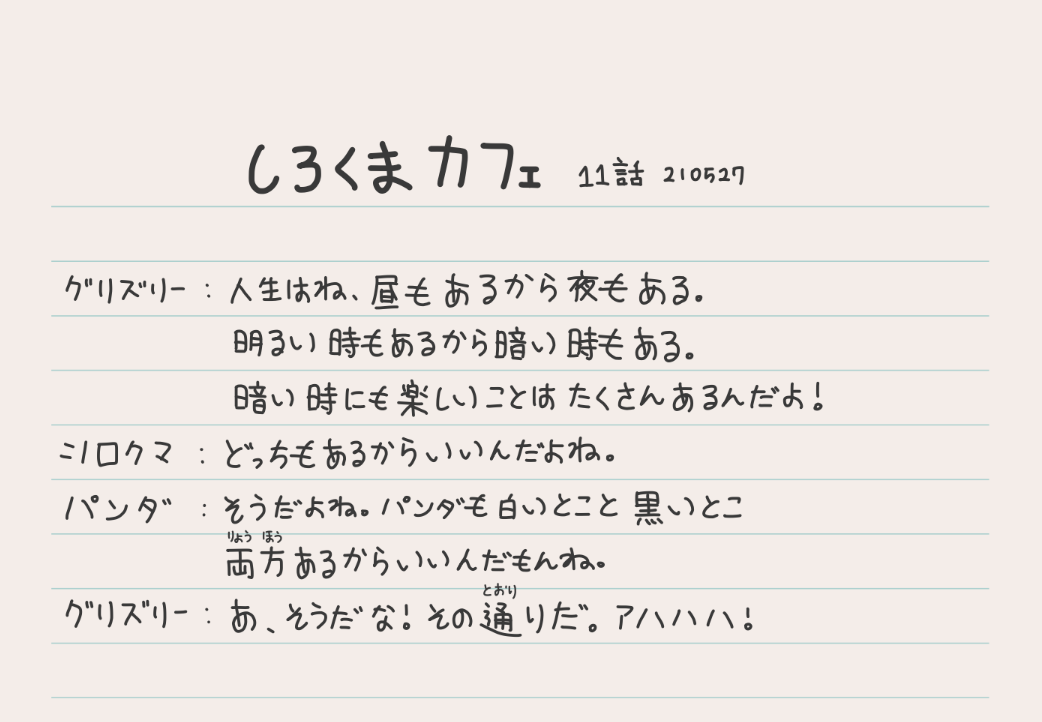 しろくまカフェ 11話 210527
グリズリー：人生はね、昼もあるから夜もある。
明るい時もあるから暗い時もある。
暗い時にも楽しいことはたくさんあるんだよ！
シロクマ：どっちもあるからいいんだよね。
パンダ：そうだよね。パンダも白いとこと黒いとこ
りょう ほう
両方あるからいいんだもんね。
とおり
グリズリー：あ、そうだな！その通りだ。アハハハ！